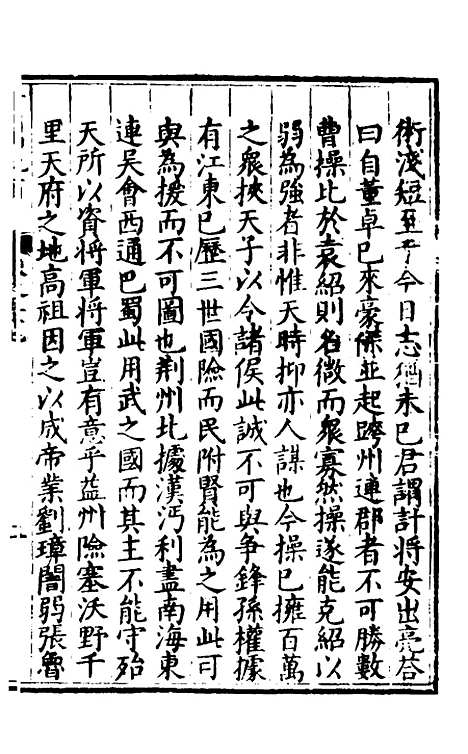 術淺短至于今日志猶未已君謂計將安出亮荅
曰自董卓已來豪傑並起跨州連郡者不可勝數
曹操比於袁紹則名微而衆寡然操遂能克紹以
弱為強者非惟天時抑亦人謀也今操已擁百萬
之衆挾天子以令諸侯此誠不可與争鋒孫權據
有江東已歷三世國險而民附賢能為之用此可
與為援而不可圖也荆州北據漢沔利盡南海東
連吴會西通巴蜀此用武之國而其主不能守殆
天所以資將軍將軍豈有意乎益州險塞沃野千
里天府之地高祖因之以成帝業劉璋闇弱張魯